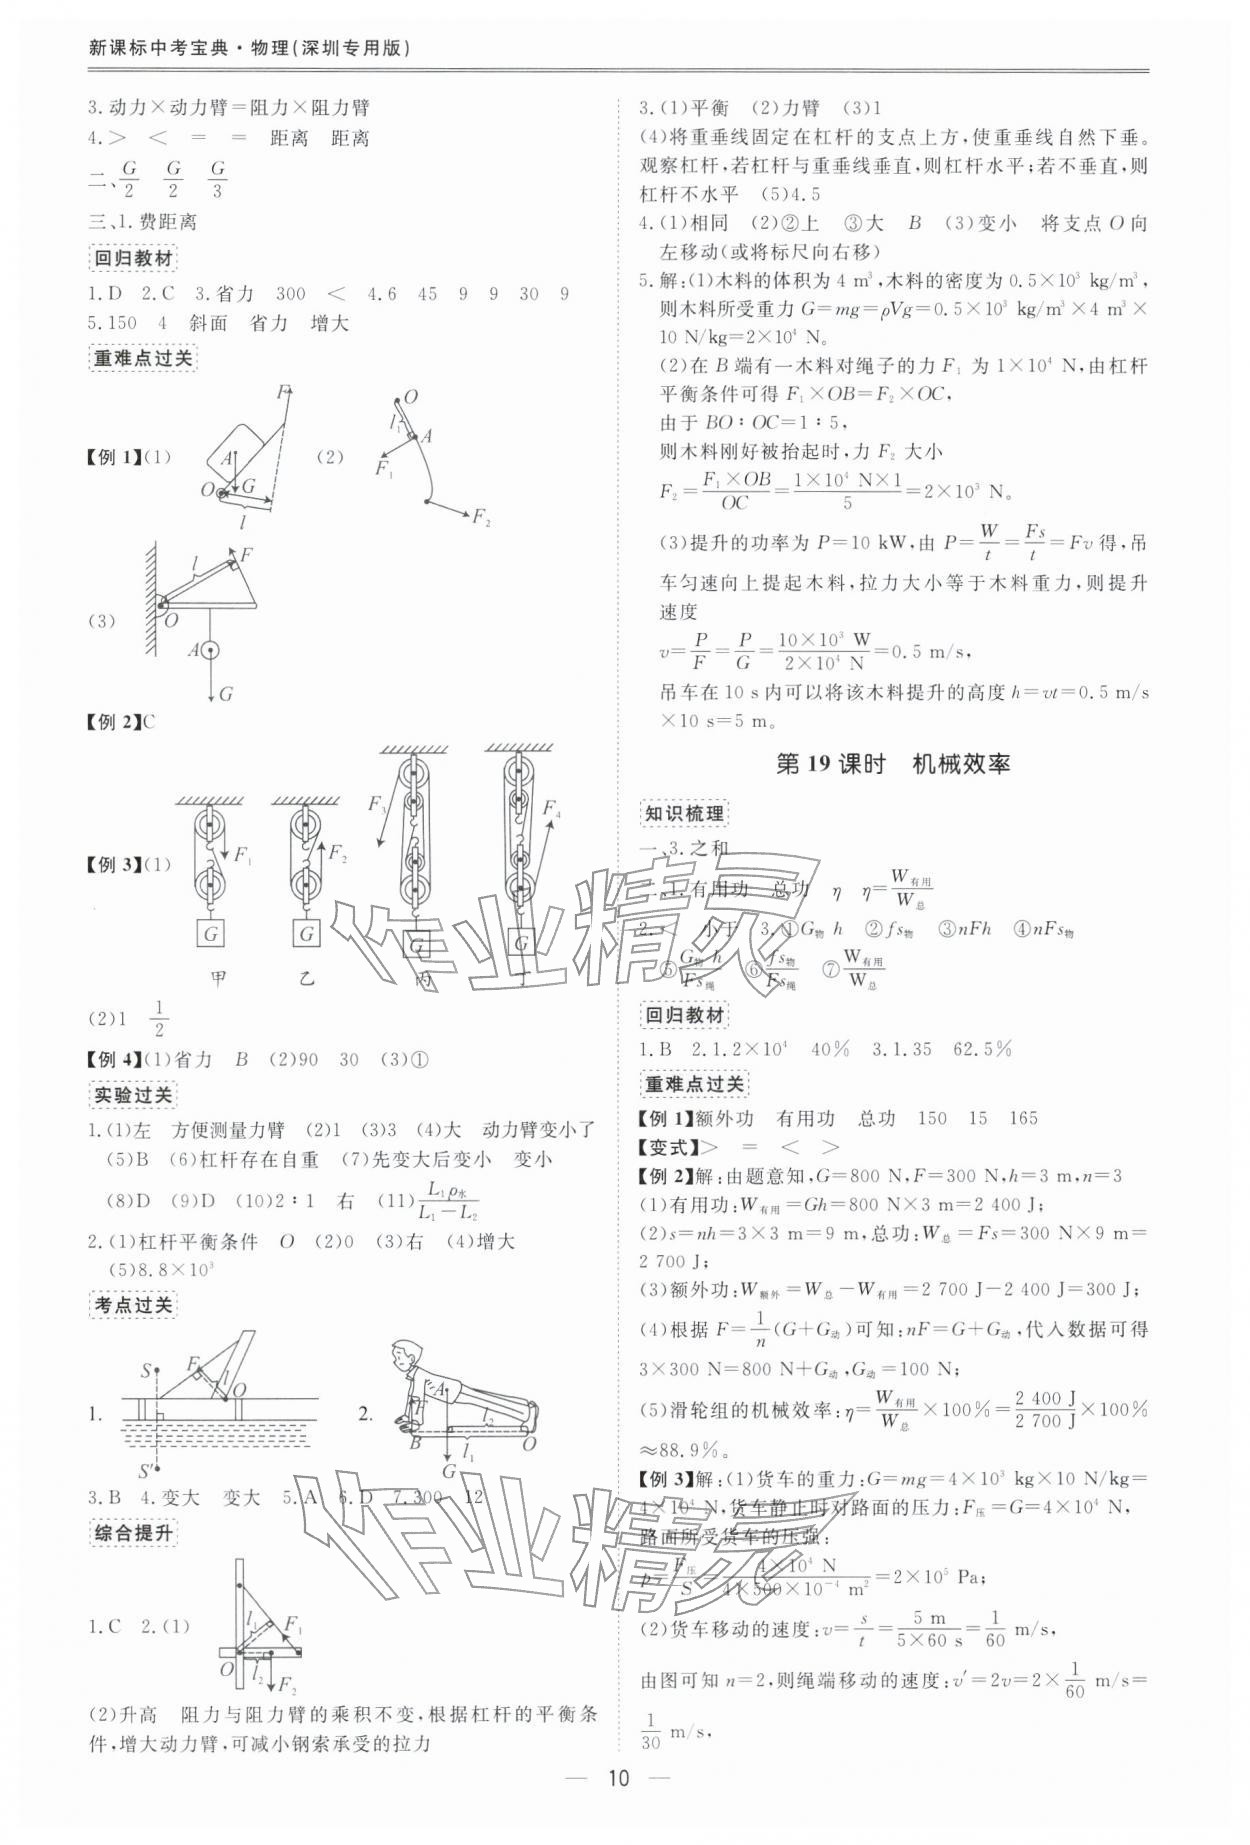 新课标中考宝典·物理(深圳专用版)
3.动力×动力臂=阻力×阻力臂
4.>　<　=　=　距离　距离
二、G/2　G/2　G/3
三、1.费距离
回归教材
1.D　2.C　3.省力　300　<　4.6　45　9　9　30　9
5.150　4　斜面　省力　增大
重难点过关
【例1】(1)　F　A　G　O　l　(2)　O　l₁　A　F₁　F₂
(3)　l　F　O　A　G
【例2】C
【例3】(1)　F₁　F₂　F₃　F₄
G　G　G　G
甲　乙　丙　丁
(2)1　1/2
【例4】(1)省力　B　(2)90　30　(3)①
实验过关
1.(1)左　方便测量力臂　(2)1　(3)3　(4)大　动力臂变小了
(5)B　(6)杠杆存在自重　(7)先变大后变小　变小
(8)D　(9)D　(10)2∶1　右　(11)L₁ρ水/(L₁−L₂)
2.(1)杠杆平衡条件　O　(2)0　(3)右　(4)增大
(5)8.8×10³
考点过关
1.　S　F　l　O　S′　2.　A　F　l₂　B　l₁　O　G
3.B　4.变大　变大　5.A　6.D　7.300　12
综合提升
1.C　2.(1)　l₁　F₁　O　l₂　F₂
(2)升高　阻力与阻力臂的乘积不变,根据杠杆的平衡条
件,增大动力臂,可减小钢索承受的拉力
3.(1)平衡　(2)力臂　(3)1
(4)将重垂线固定在杠杆的支点上方,使重垂线自然下垂。
观察杠杆,若杠杆与重垂线垂直,则杠杆水平;若不垂直,则
杠杆不水平　(5)4.5
4.(1)相同　(2)②上　③大　B　(3)变小　将支点O向
左移动(或将标尺向右移)
5.解:(1)木料的体积为4 m³,木料的密度为0.5×10³ kg/m³,
则木料所受重力G=mg=ρVg=0.5×10³ kg/m³×4 m³×
10 N/kg=2×10⁴ N。
(2)在B端有一木料对绳子的力F₁为1×10⁴ N,由杠杆
平衡条件可得F₁×OB=F₂×OC,
由于BO∶OC=1∶5,
则木料刚好被抬起时,力F₂大小
F₂=F₁×OB/OC=1×10⁴ N×1/5=2×10³ N。
(3)提升的功率为P=10 kW,由P=W/t=Fs/t=Fv得,吊
车匀速向上提起木料,拉力大小等于木料重力,则提升
速度
v=P/F=P/G=10×10³ W/2×10⁴ N=0.5 m/s,
吊车在10 s内可以将该木料提升的高度h=vt=0.5 m/s
×10 s=5 m。
第19课时　机械效率
知识梳理
一、3.之和
二、1.有用功　总功　η　η=W有用/W总
2.<　小于　3.①G物h　②fs物　③nFh　④nFs物
⑤G物h/Fs绳　⑥fs物/Fs绳　⑦W有用/W总
回归教材
1.B　2.1.2×10⁴　40%　3.1.35　62.5%
重难点过关
【例1】额外功　有用功　总功　150　15　165
【变式】>　=　<　>
【例2】解:由题意知,G=800 N,F=300 N,h=3 m,n=3
(1)有用功:W有用=Gh=800 N×3 m=2 400 J;
(2)s=nh=3×3 m=9 m,总功:W总=Fs=300 N×9 m=
2 700 J;
(3)额外功:W额外=W总−W有用=2 700 J−2 400 J=300 J;
(4)根据F=1/n(G+G动)可知:nF=G+G动,代入数据可得
3×300 N=800 N+G动,G动=100 N;
(5)滑轮组的机械效率:η=W有用/W总×100%=2 400 J/2 700 J×100%
≈88.9%。
【例3】解:(1)货车的重力:G=mg=4×10³ kg×10 N/kg=
4×10⁴ N,货车静止时对路面的压力:F压=G=4×10⁴ N,
路面所受货车的压强:
p=F压/S=4×10⁴ N/4×500×10⁻⁴ m²=2×10⁵ Pa;
(2)货车移动的速度:v=s/t=5 m/5×60 s=1/60 m/s,
由图可知n=2,则绳端移动的速度:v′=2v=2×1/60 m/s=
1/30 m/s,
10
作业精灵
作业精灵